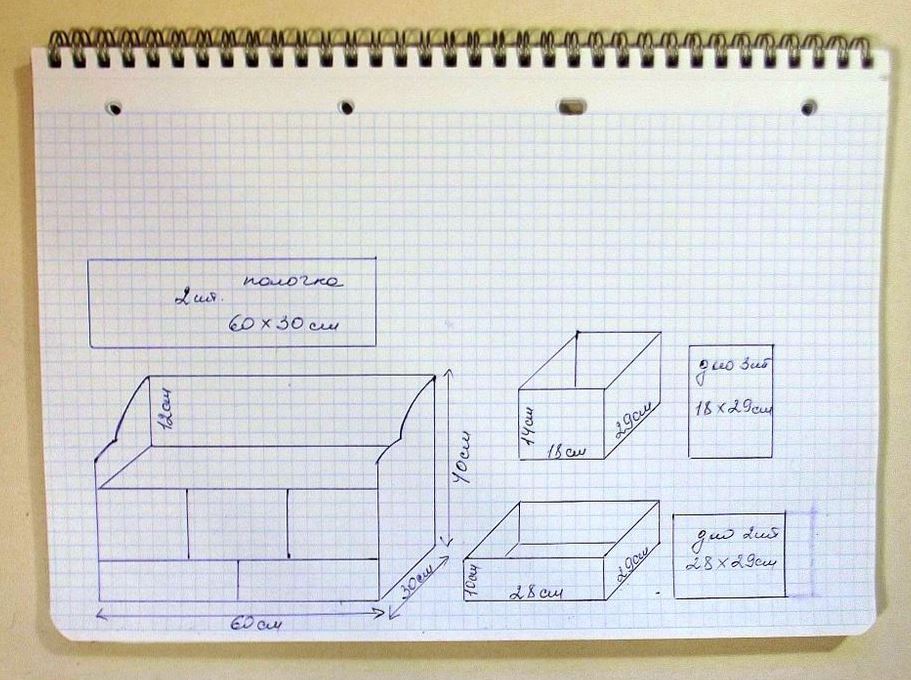 полочка
2шт.
60×30см
12см
40см
30см
60см
14см
18см
29см
дно 3шт
18×29см
10см
28см
29см
дно 2шт
28×29см